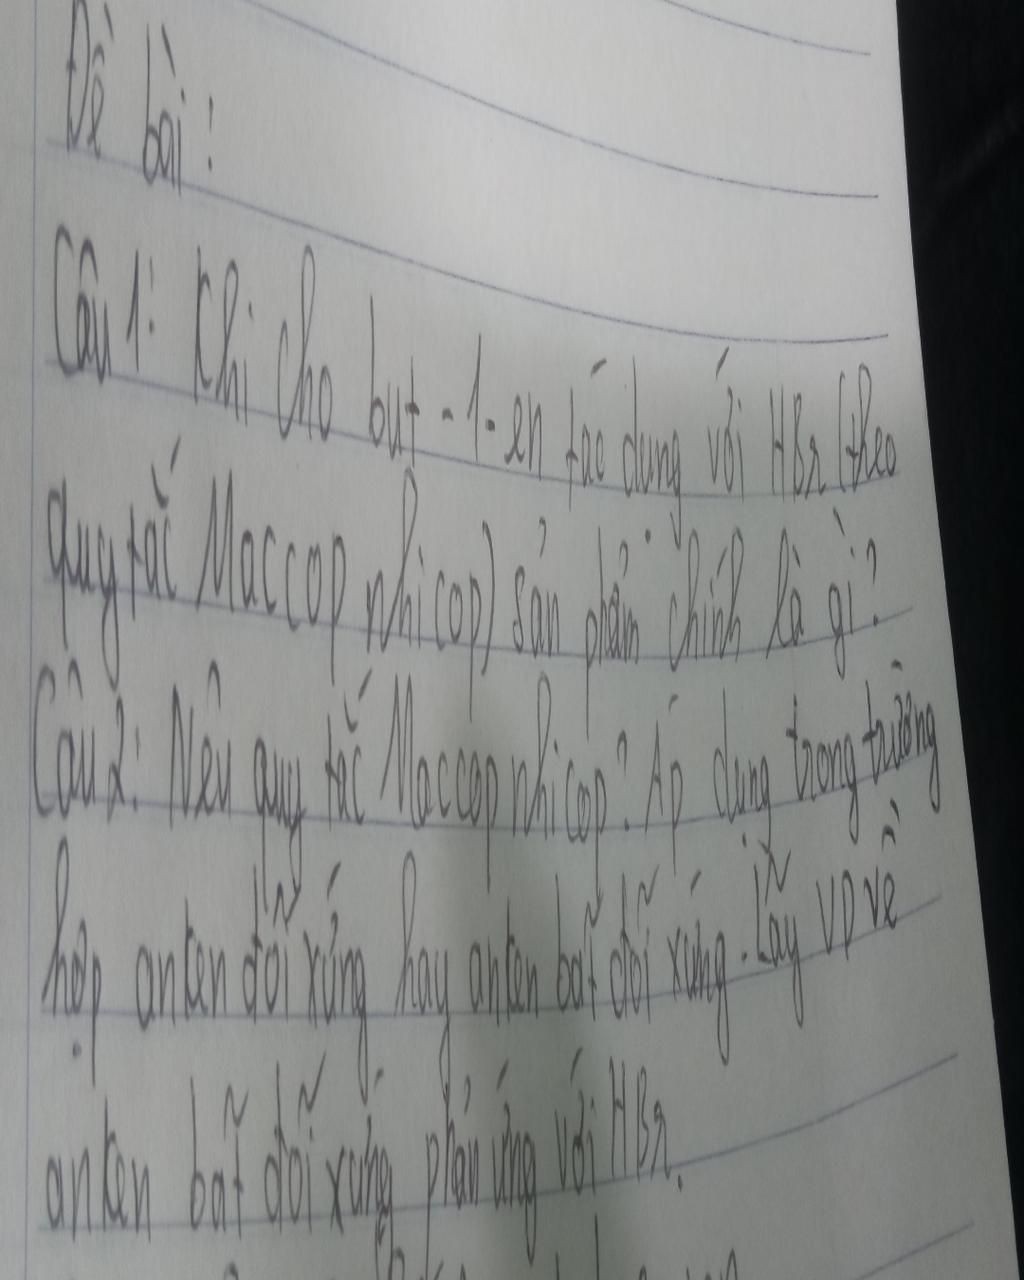 Đề bài:
Câu 1: Khi cho but-1-en tác dụng với HBr (theo
quy tắc Maccopnhicop) sản phẩm chính là gì?
Câu 2: Nêu quy tắc Maccopnhicop? Áp dụng trong trường
hợp anken đối xứng hay anken bất đối xứng. Lấy VD về
anken bất đối xứng phản ứng với HBr.